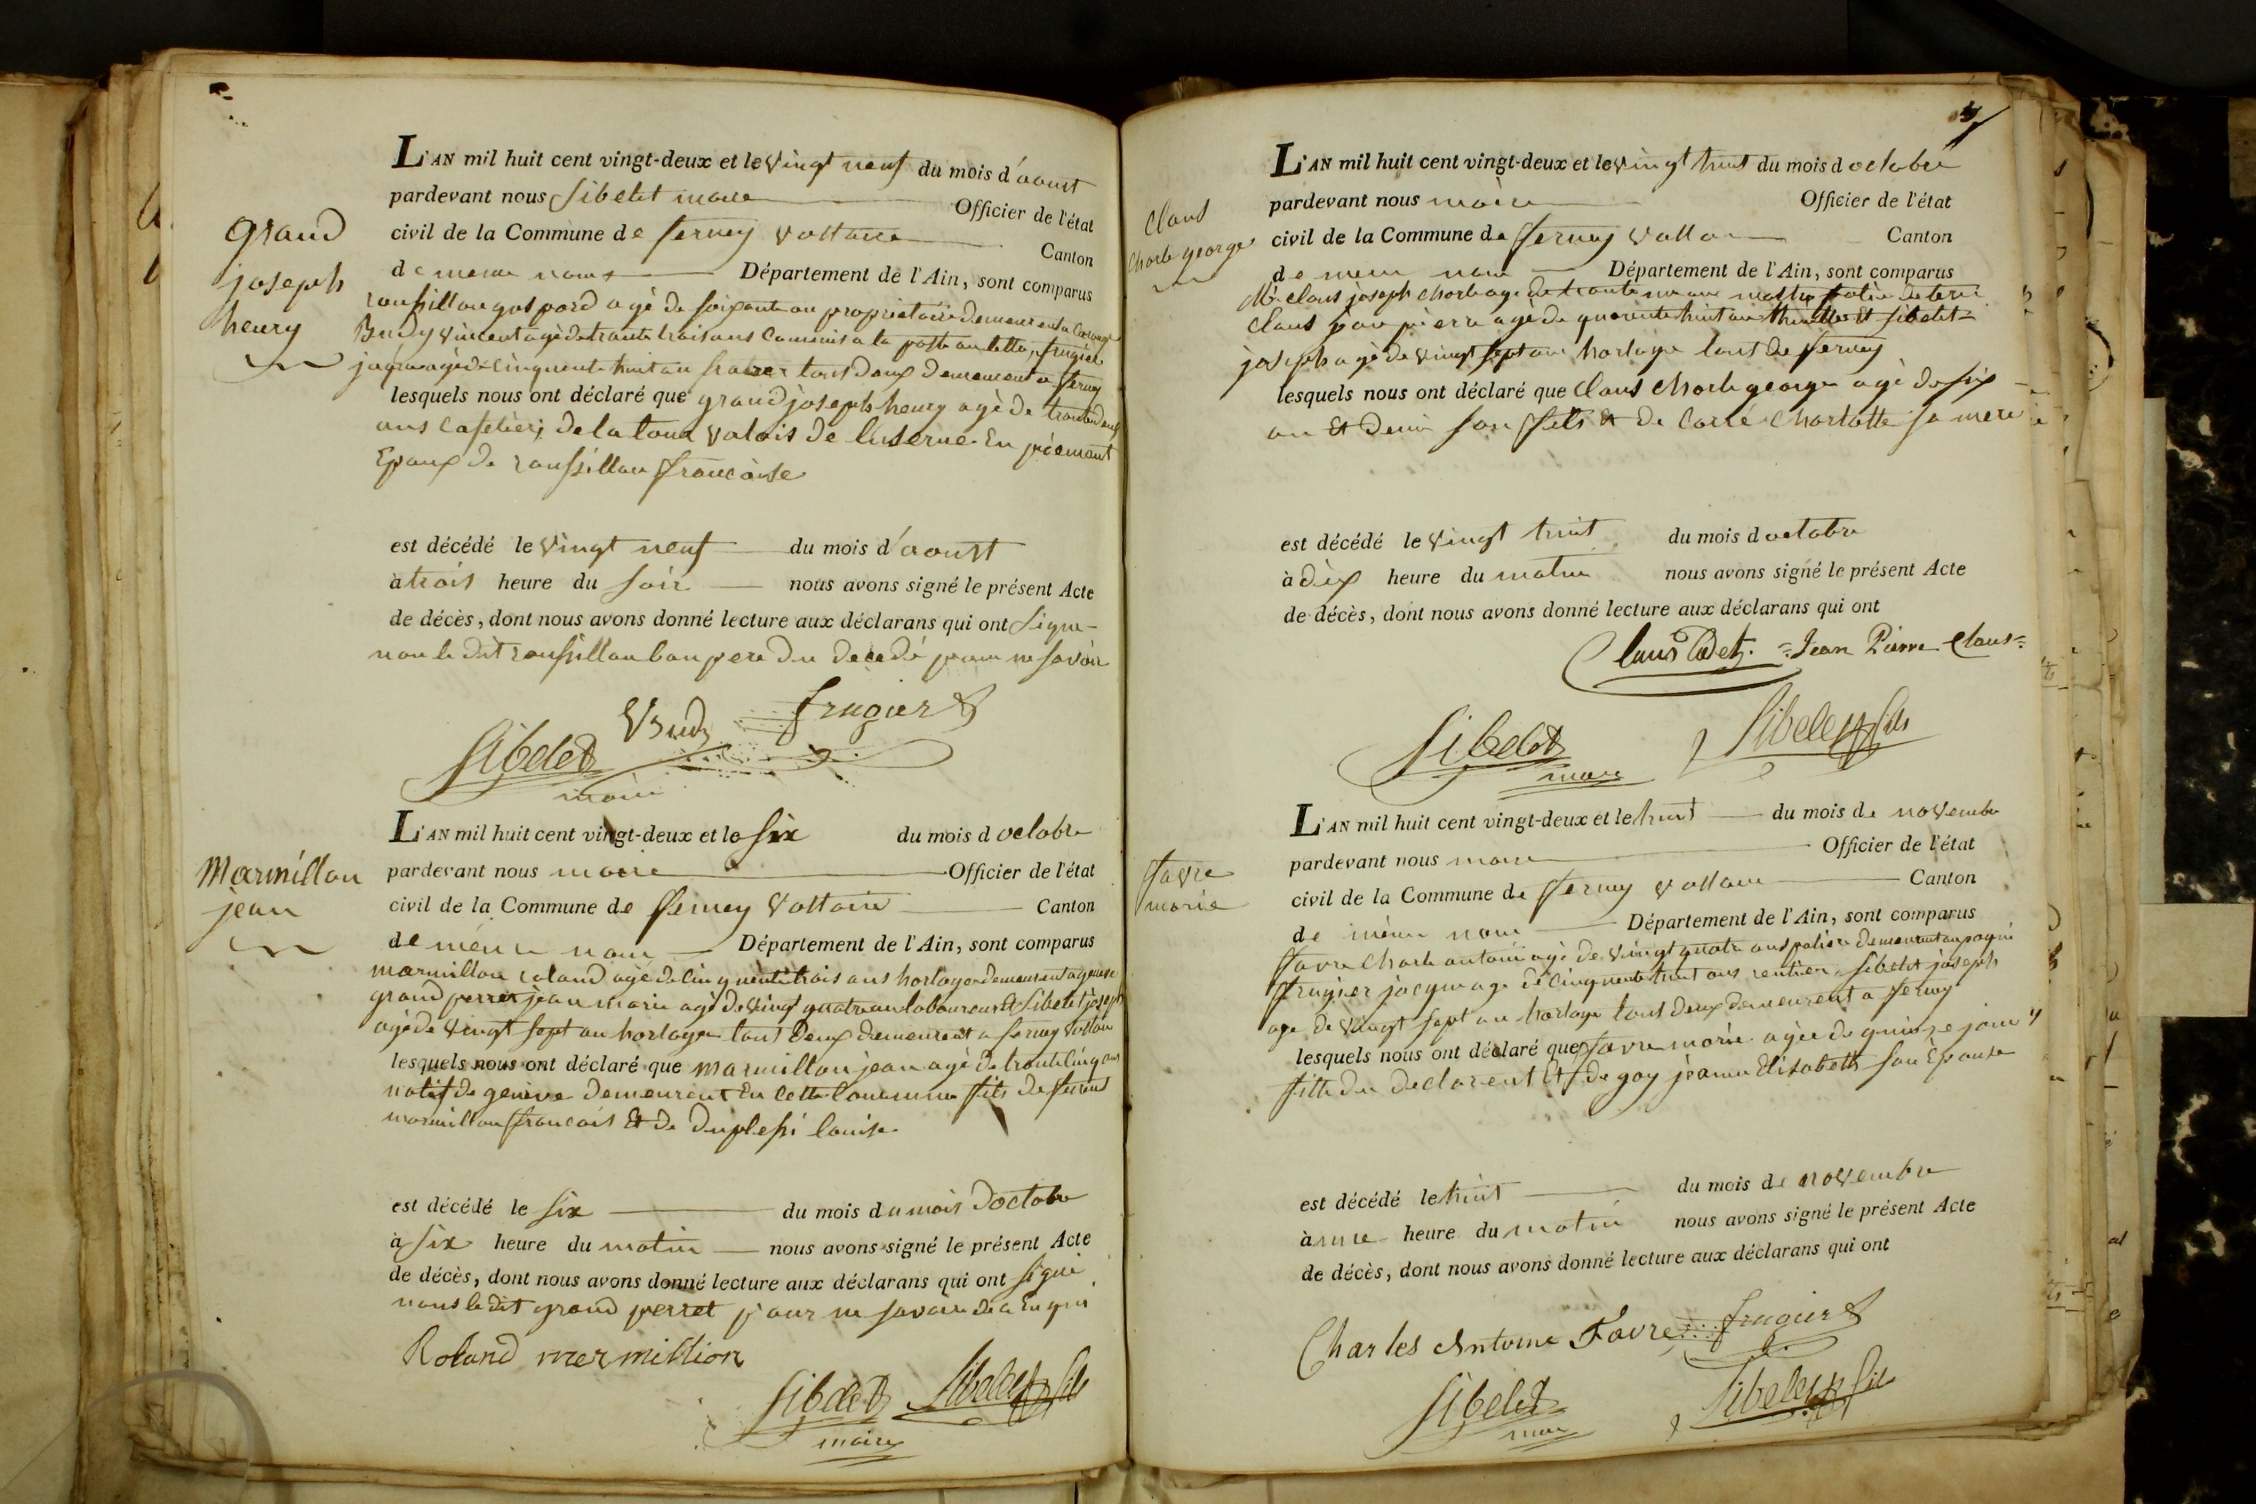 L'AN mil huit cent vingt-deux et le vingt neuf du mois d'aoust
pardevant nous Sibelet maire Officier de l'état
civil de la Commune de ferney voltaire Canton
de meme nom Département de l'Ain, sont comparus
grand
joseph
henry
roussillon gaspard agé de soixante an propriétaire demeurent a
Budy vincent agé de trante trois ans a la poste au lettre, frugier
agé de cinquente huit an tous deux demeurent a ferney
lesquels nous ont déclaré que grand joseph henry agé de
ans cafetier, de la tour valois de luserne En piémont
Epoux de roussillon francoise
est décédé le vingt neuf du mois d'aoust
à trois heure du soir nous avons signé le présent Acte
de décès, dont nous avons donné lecture aux déclarans qui ont signé
non le dit roussillon bau pere du décédé pour ne savoir
Budy frugier
Sibelet
maire
L'AN mil huit cent vingt-deux et le six du mois d octobre
pardevant nous maire Officier de l'état
civil de la Commune de ferney voltaire Canton
de même nom Département de l'Ain, sont comparus
Marmillon
jean
marmillon roland agé de cinquente trois ans horloger demeurent a geneve
grand perret jean marie agé de vingt quatre an laboureur et Sibelet joseph
agé de vingt sept an horloger tout deux demeurent a ferney voltaire
lesquels nous ont déclaré que marmillon jean agé de trente cinq ans
natif de genève demeurent En cette Commune fils de
marmillon francois et de duplessi louise
est décédé le six du mois du mois doctobre
à six heure du matin nous avons signé le présent Acte
de décès, dont nous avons donné lecture aux déclarans qui ont signé
nous le dit grand perret pour ne savoir
Roland mermillion
Sibelet Sibelet fils
maire
L'AN mil huit cent vingt-deux et le vingt huit du mois d octobre
pardevant nous maire Officier de l'état
civil de la Commune de ferney voltaire Canton
de meme nom Département de l'Ain, sont comparus
Claus
Charle george
Mr Claus joseph Charle agé de trante
Claus jean pierre agé de quarente huit an et Sibelet
joseph agé de vingt sept an horloger tout de ferney
lesquels nous ont déclaré que Claus Charle george agé de six
an et demi son fils et de Carré Charlotte sa mere
est décédé le vingt huit du mois d octobre
à dix heure du matin nous avons signé le présent Acte
de décès, dont nous avons donné lecture aux déclarans qui ont
Claus Cadet. Jean Pierre Claus
Sibelet Sibelet fils
maire
L'AN mil huit cent vingt-deux et le huit du mois de novembre
pardevant nous maire Officier de l'état
civil de la Commune de ferney voltaire Canton
de même nom Département de l'Ain, sont comparus
favre
marie
favre Charle antoine agé de vingt quatre ans demeurent
frugier jacque agé de cinquente huit ans rentier, Sibelet joseph
age de vingt sept an horloger tout deux demeurent a ferney
lesquels nous ont déclaré que favre marie agée de quinze jour
fille du declarent et de goy jeanne Elisabeth son Epouse
est décédé le huit du mois de novembre
à une heure du matin nous avons signé le présent Acte
de décès, dont nous avons donné lecture aux déclarans qui ont
Charles Antoine Favre frugier
Sibelet Sibelet fils
maire